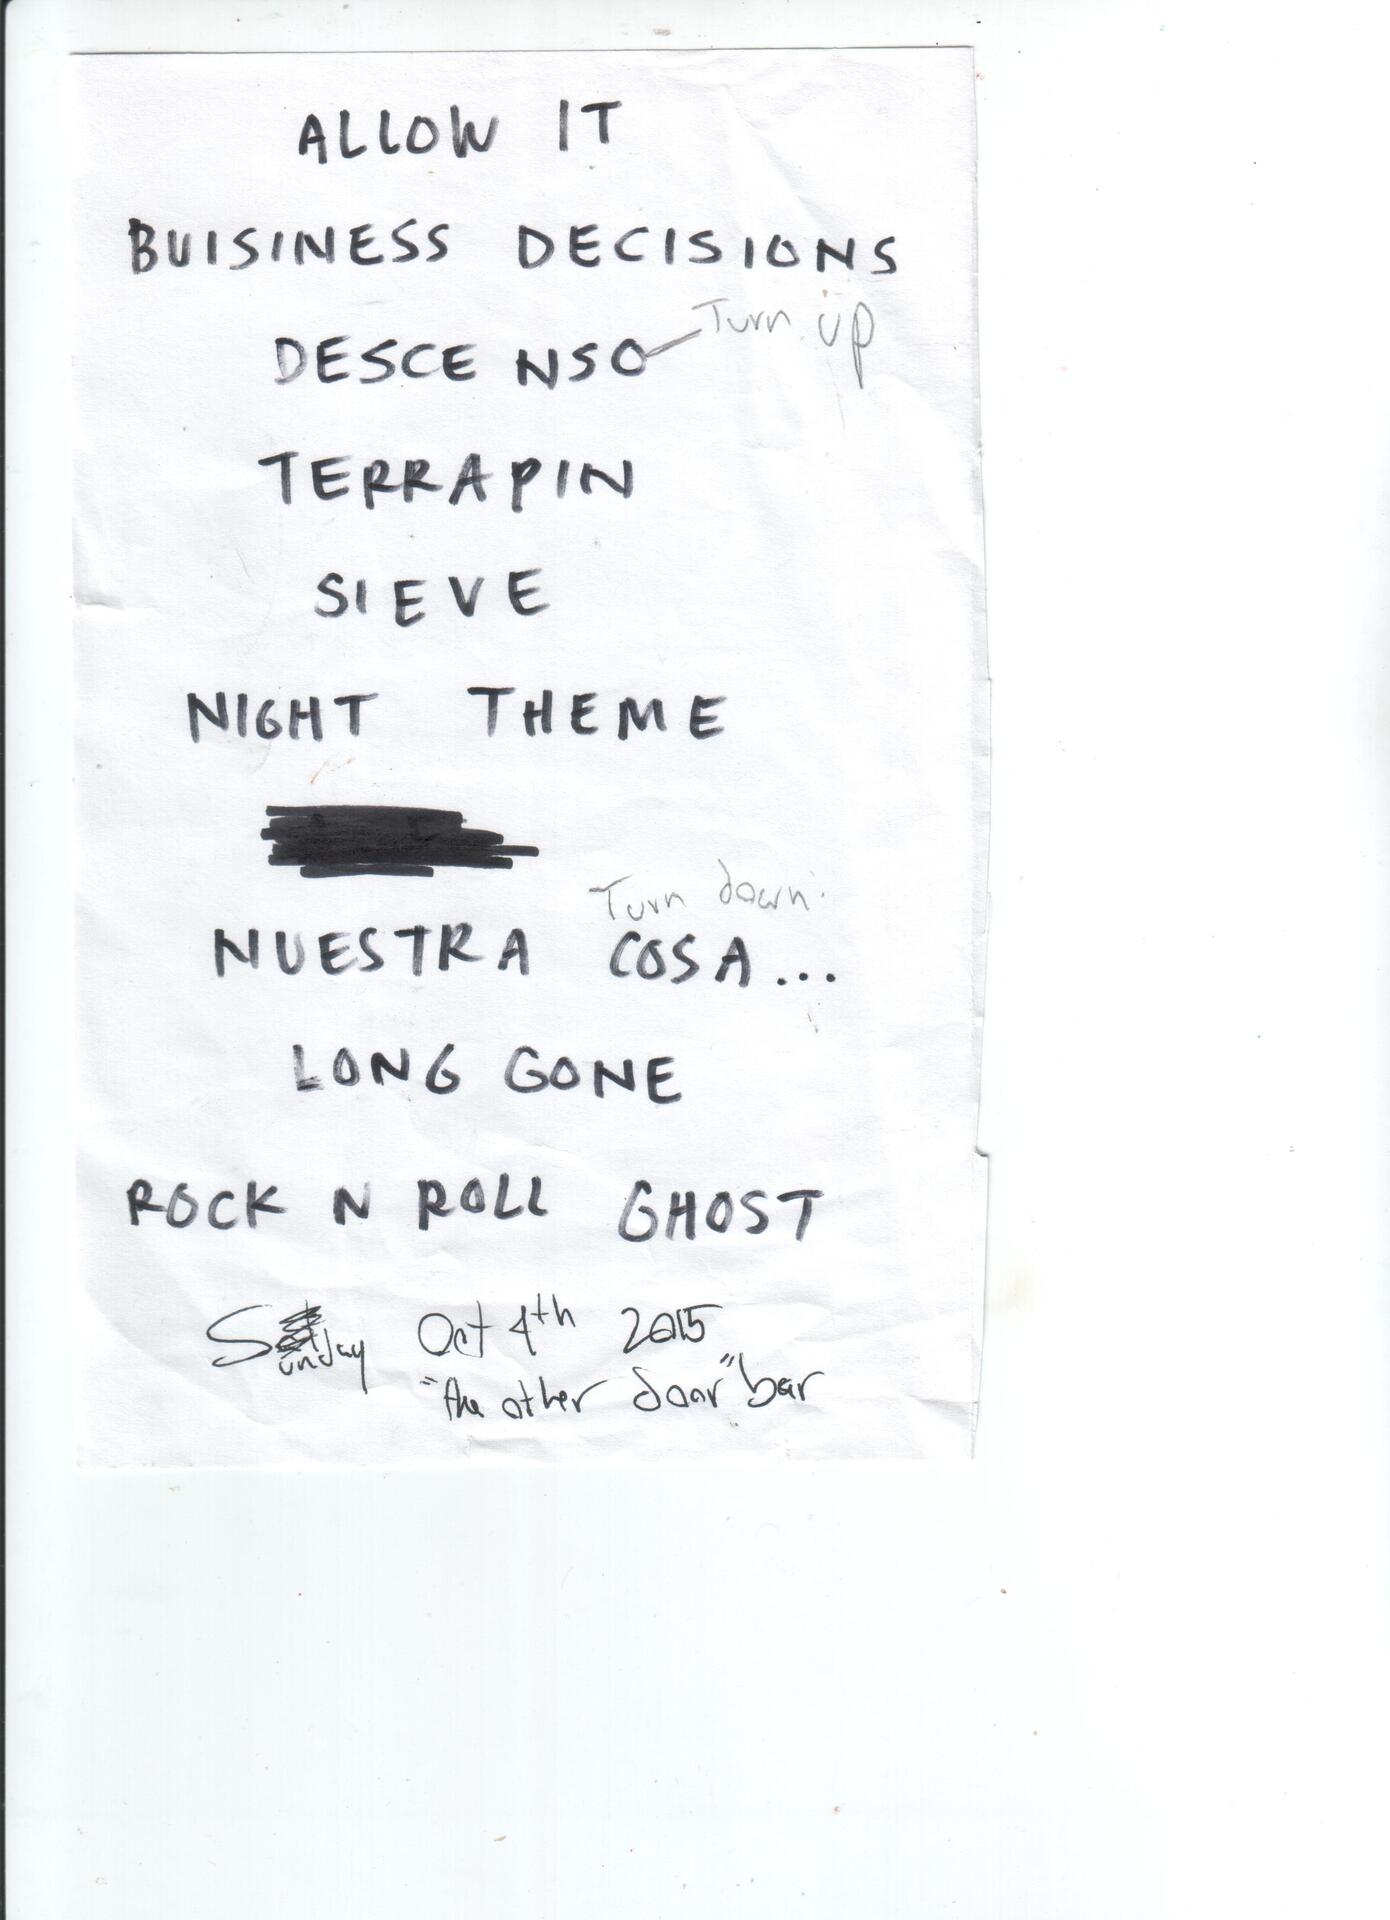 ALLOW IT
BUISINESS DECISIONS
Turn up
DESCENSO
TERRAPIN
SIEVE
NIGHT THEME
Turn down
NUESTRA COSA...
LONG GONE
ROCK N ROLL GHOST
Sunday Oct 4th 2015
"the other door" bar